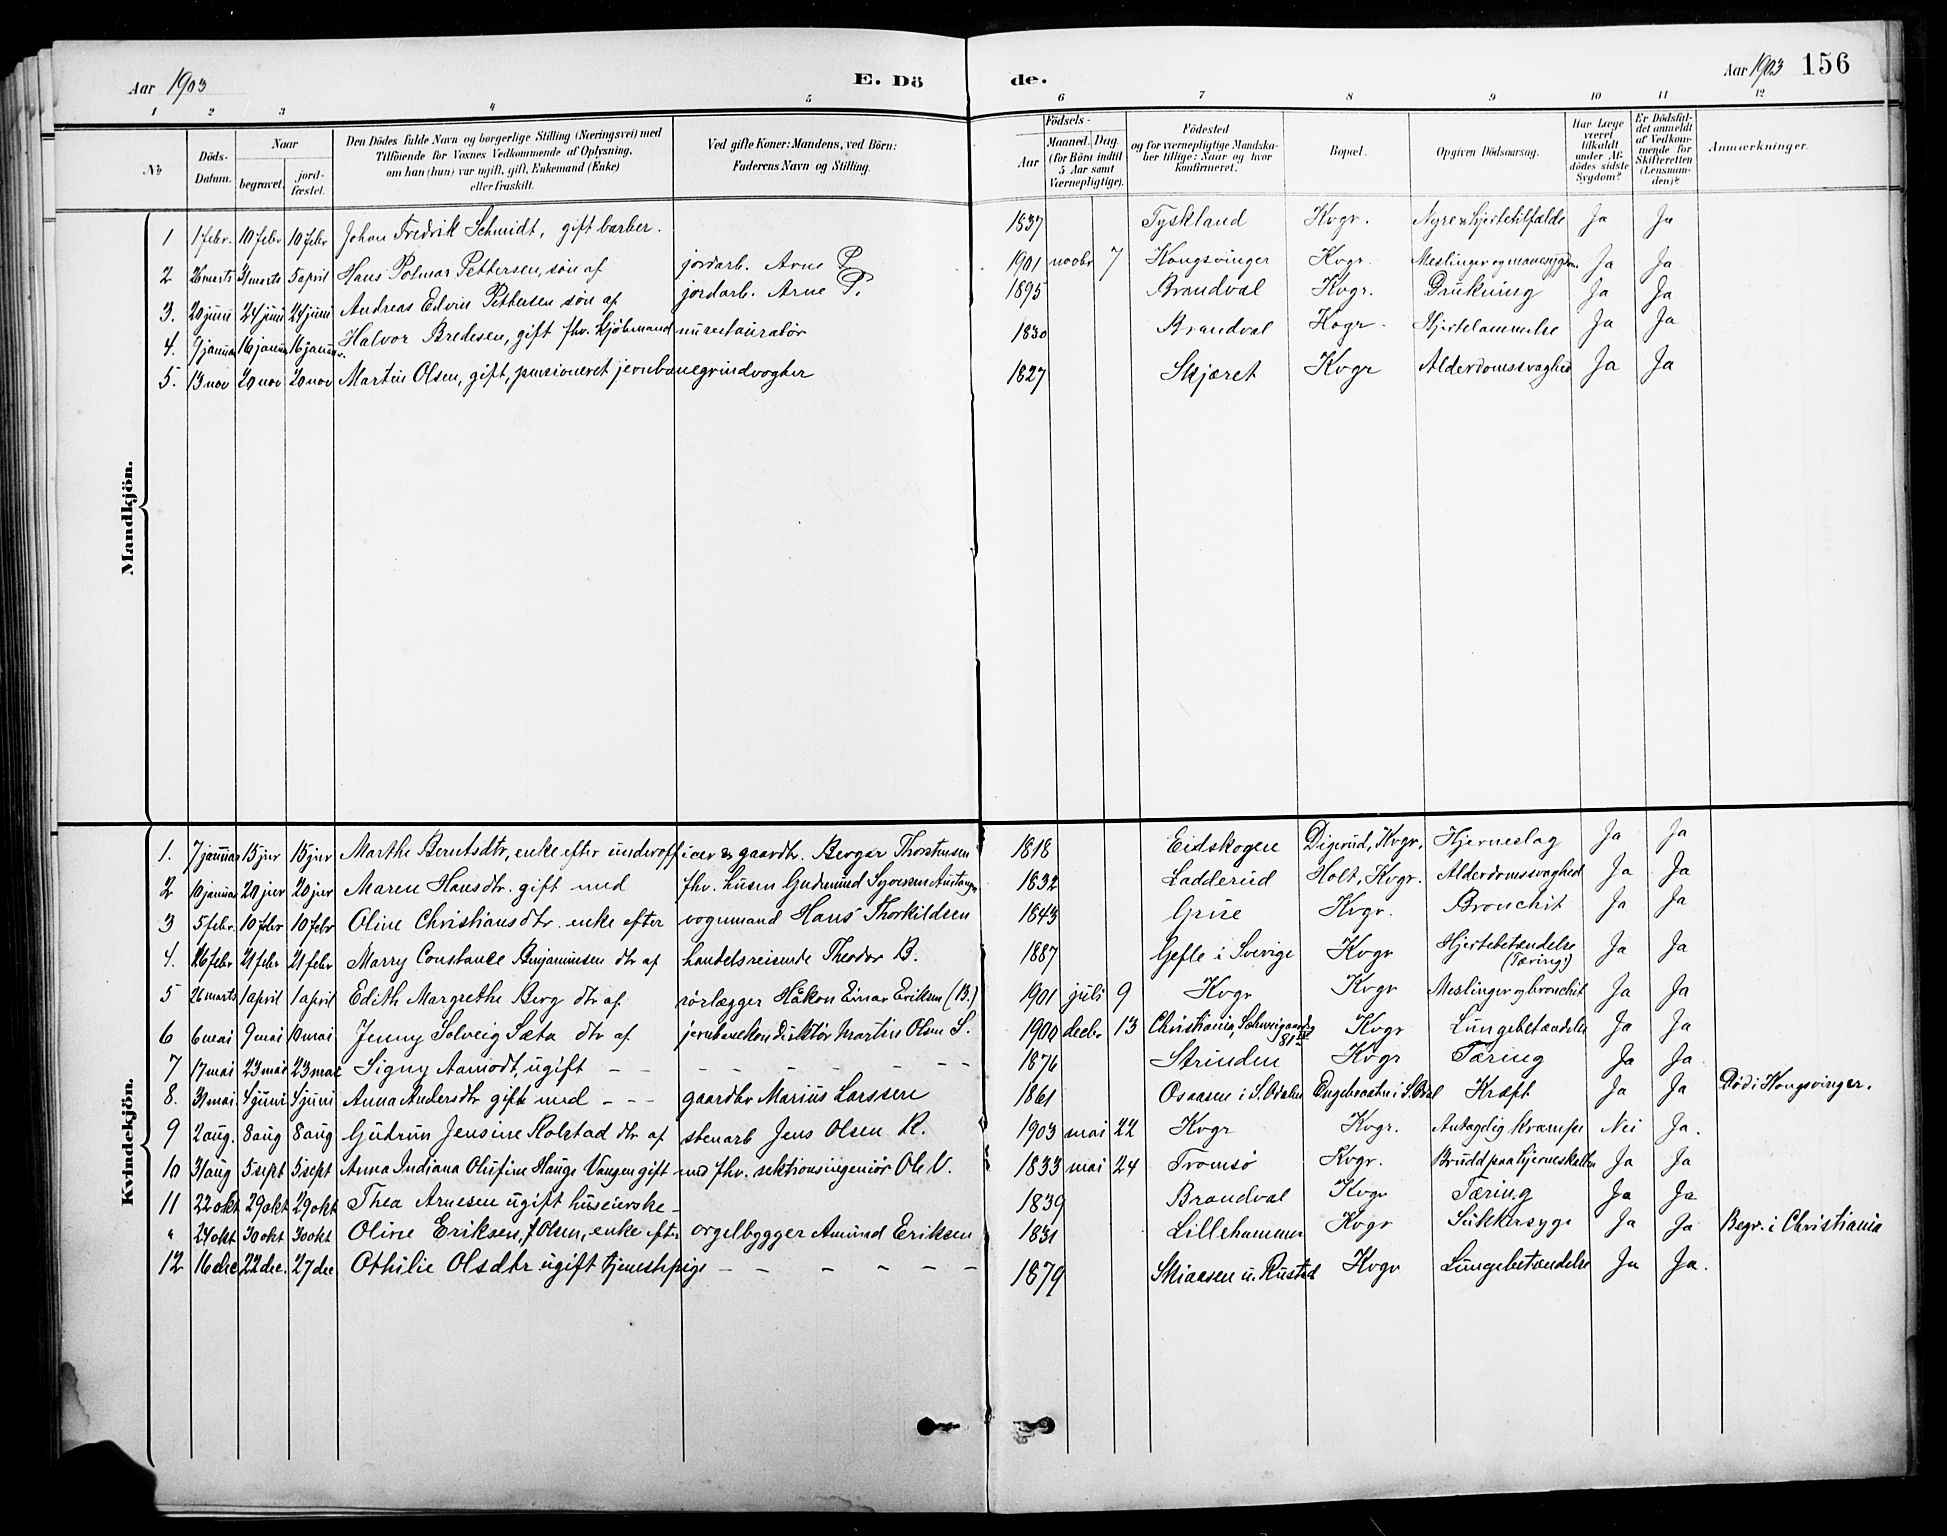 Aar 1903 E. Dö de. Aar 1903 156
1 2 3 4 5 6 7 8 9 10 11 12
№ Döds-Datum. Naar begravet. jord-fæstet. Den Dödes fulde Navn og borgerlige Stilling (Næringsvei) med Tilföiende for Voxnes Vedkommende af Oplysning, om han (hun) var ugift, gift, Enkemand (Enke) eller fraskilt. Ved gifte Koner: Mandens, ved Börn: Faderens Navn og Stilling. Födsels- Aar Maaned. Dag. (for Börn indtil 5 Aar samt Værnepligtige). Födested og for værnepligtige Mandska-ber tillige: Naar og hvor konfirmeret. Bopæl. Opgiven Dödsaarsag. Har Læge været tilkaldt under Af-dödes sidste Sygdom? Er Dödsfal-det anmeldt af Vedkom-mende for Skifteretten (Lensman-den)? Anmærkninger.
Mandkjön.
1 1 febr. 10 febr 10 febr Johan Fredrik Schmidt, gift barber. 1837 Tyskland Kvgr. Nyre n hjertetilfælde Ja Ja
2 26 marts 31 marts 5 april Hans Polmar Pettersen, søn af jordarb. Arne P. 1901 novbr 7 Kongsvinger Kvgr. Meslinger og Ja Ja
3. 20 juni 24 juni 24 juni Andreas Edvin Pettersen søn af jordarb. Arne P. 1895 Brandval Kvgr. Drukning Ja Ja
4. 9 januar 16 januar 16 januar Halvor Bredesen, gift fhv. kjøbmand nu restauratør 1830 Brandval Kvgr. Hjertelammelse Ja Ja
5. 13 nov 20 nov 20 nov Martin Olsen, gift, pensioneret jernbanegrindvogter 1827 Skjæret Kvgr Alderdomssvaghed Ja Ja
Kvindekjön.
1. 7 januar 15 jnr 15 jnr Marthe Berntsdtr, enke efter underofficer & gaardbr. Berger Thorstensen 1818 Eidskogen Digerud, Kvgr, Hjerneslag Ja Ja
2 10 januar 20 jnr 20 jnr Maren Hansdtr. gift med fhv. husm Gudmund Syversen 1832 Ladderud Holt, Kvgr. Alderdomssvaghed Ja Ja
3 5 febr. 10 febr 10 febr Oline Christiansdtr. enke efter vognmand Hans Thorkildsen 1843 Grue Kvgr. Bronchit Ja Ja
4. 26 febr 21 febr 21 febr Marry Constance Benjaminsen dtr af handelsreisende Theodor B. 1887 Gefle i Sverige Kvgr Hjertebetændelse (Tæring?) Ja Ja
5 26 marts 1 april 1 april Edith Margrethe Berg dtr af. rørlægger Håkon Einar Eriksen (B.) 1901 juli 9 Kvgr Kvgr Meslinger og bronchit Ja Ja
6 6 mai 9 mai 10 mai Jenny Solveig Sæta dtr af jernbanekonduktør Martin Olsen S. 1900 decbr 13 Christiania, Schweigaardsg 81 Kvgr Lungebetændelse Ja Ja
7 17 mai 23 mai 23 mai Signy Aamodt, ugift – – – – – – – – 1876 Strinden Kvgr Tæring Ja Ja
8. 31 mai 4 juni 4 juni Anna Andersdtr gift med – – – gaardbr Marius Larssen 1861 Osaasen i S. Odalen i S. Odal Kræft Ja Ja Død i Kongsvinger.
9 2 aug. 8 aug 8 aug Gudrun Jensine Rolstad dtr af stenarb Jens Olsen R. 1903 mai 22 Kvgr Kvgr. Antagelig kramper Nei Ja.
10 31 aug 5 sept 5 sept Anna Indiana Olufine Hauge Vangen gift med fhv. sektionsingeniør Ole V. 1833 mai 24 Tromsø Kvgr. Brudd paa hjerneskallen Ja Ja
11 22 okt 29 okt 29 okt Thea Arnesen ugift huseierske – 1839 Brandval Kvgr Tæring Ja Ja
" 24 okt 30 okt 30 okt Oline Eriksen, f Olsen, enke efter orgelbygger Amund Eriksen 1831 Lillehammer Kvgr Sukkersyge Ja Ja Begr. i Christiania
12 16 dec 22 dec. 27 dec Othilie Olsdtr ugift tjenestepige – – – – – – 1879 Skiaasen u. Rustad Kvgr Lungebetændelse Ja Ja.